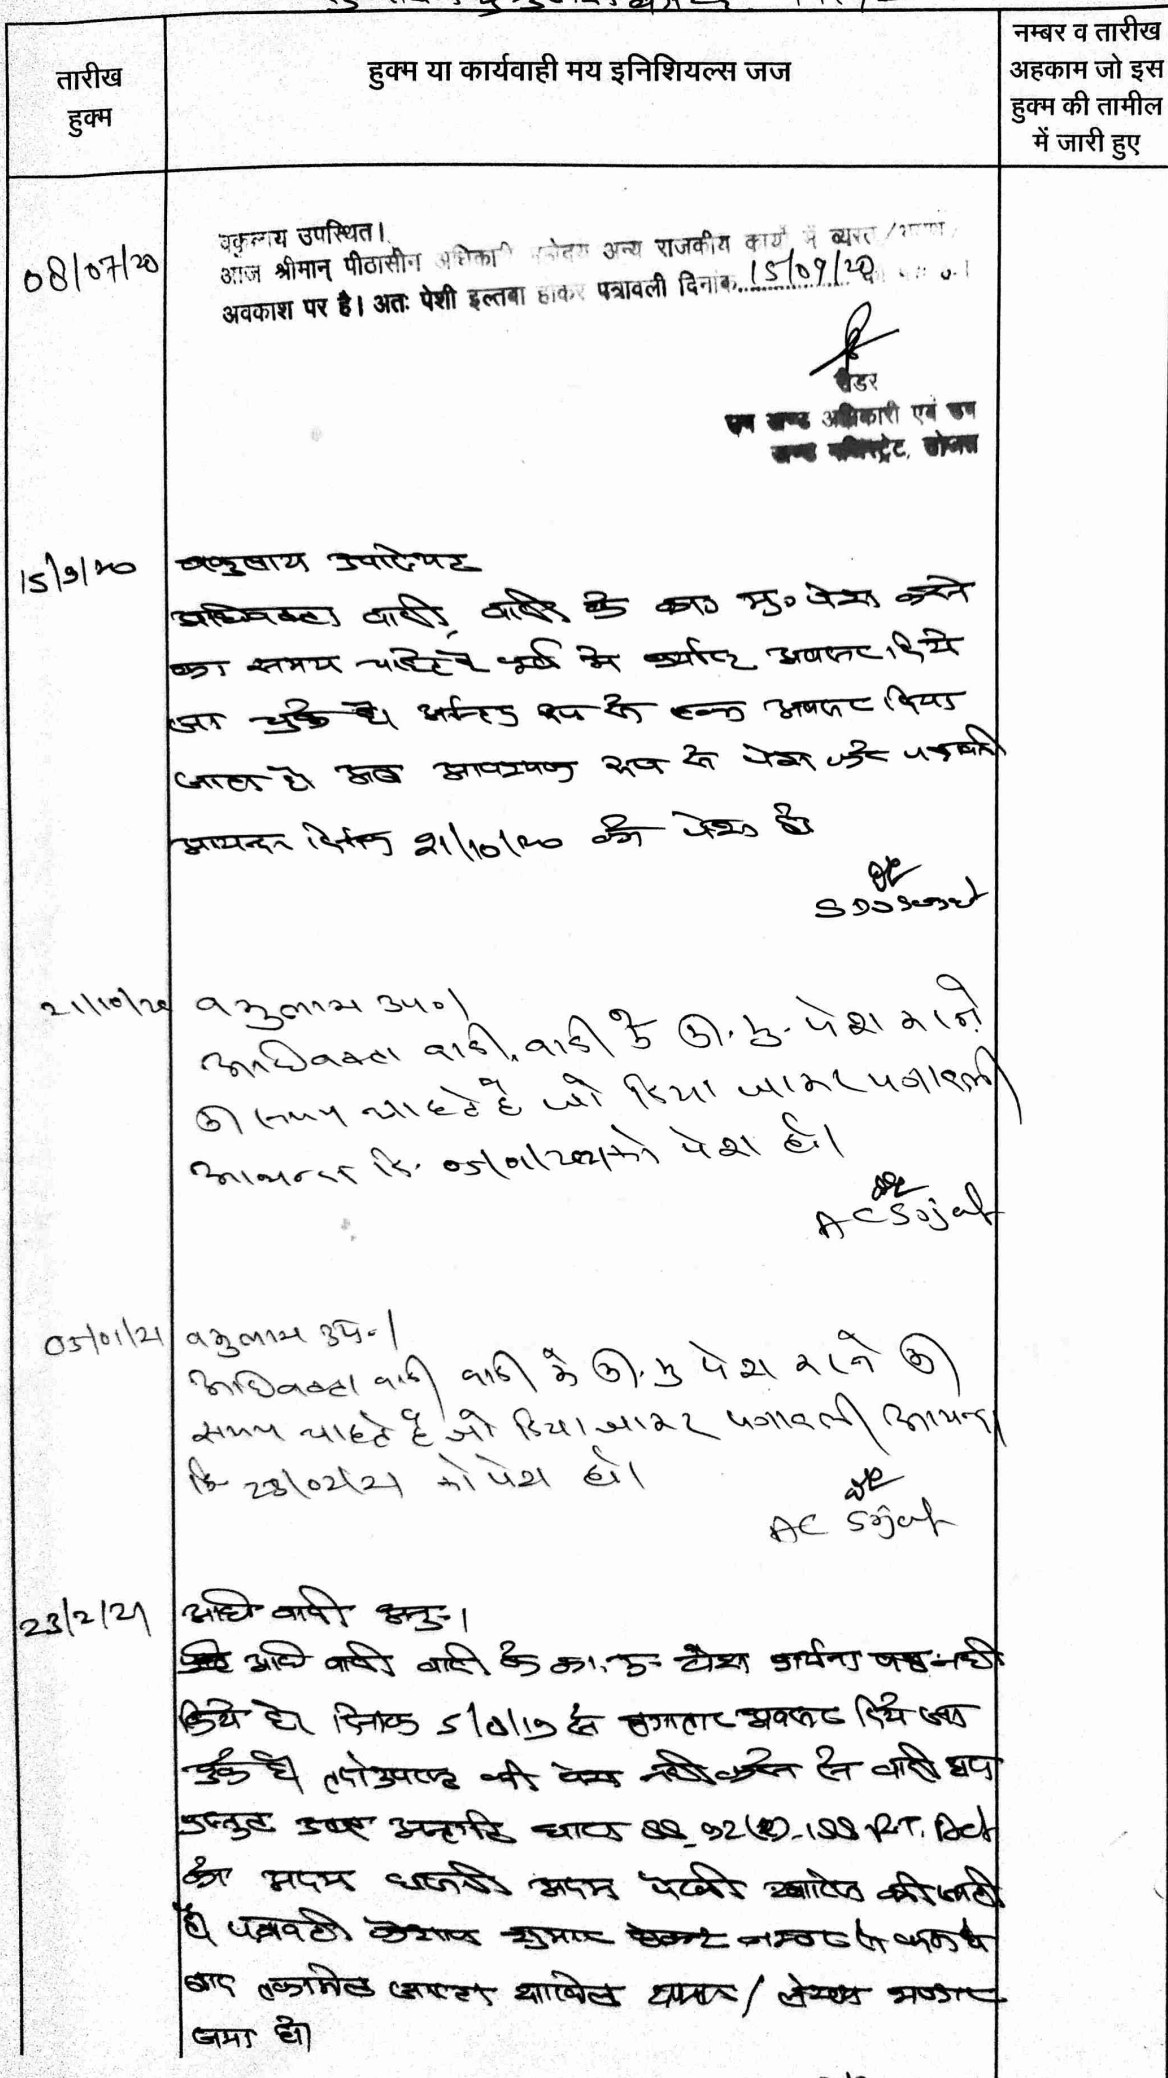 तारीख
हुक्म
हुक्म या कार्यवाही मय इनिशियल्स जज
नम्बर व तारीख
अहकाम जो इस
हुक्म की तामील
में जारी हुए
08/07/20
वकुलाय उपस्थित।
आज श्रीमान् पीठासीन अधिकारी महोदय अन्य राजकीय कार्यो में व्यस्त /
अवकाश पर है। अतः पेशी इल्तबा होकर पत्रावली दिनांक 15/09/20
रीडर
उप खण्ड अधिकारी एवं उप
खण्ड मजिस्ट्रेट, सोजत
15/9/20
वकुलाय उपस्थित
अधिवक्ता वादी, वादी के का० मु० पेश करने
का समय चाहते है पूर्व में पर्याप्त अवसर दिये
जा चुके है। अन्तिम रूप से एक अवसर दिया
जाता है अब आवश्यक रूप से पेश करे पत्रावली
आयन्दा दिनांक 21/10/20 को पेश हो
SDO Sojat
21/10/20
वकुलाय उप०।
अधिवक्ता वादी, वादी के का. मु. पेश करने
का समय चाहते है जो दिया जाकर पत्रावली
आयन्दा दि. 05/01/2021 को पेश हो।
AC Sojat
05/01/21
वकुलाय उप०।
अधिवक्ता वादी वादी के का. मु पेश करने का
समय चाहते है जो दिया जाकर पत्रावली आयन्दा
दि 23/02/21 को पेश हो।
AC Sojat
23/2/21
अधि वादी अनु.।
अधि वादी वादी के का. मु. पेश प्रार्थना पत्र नही
किये है। दिनांक से लगातार अवसर दिये जा
चुके है। तदोउपरान्त भी पेश नही करने से वादी द्वारा
प्रस्तुत अन्तर्गत धारा 88, 92(A)-188 R.T. Act
को अदम हाजरी अदम पैरवी खारिज की जाती
है। पत्रावली शुमार नम्बर से कम हो
बाद तकमील दाखिल
जमा हो।